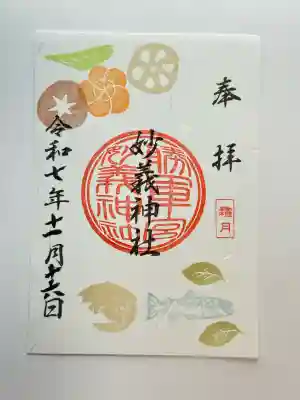 奉拝
霜月
妙義神社
令和七年十一月十六日